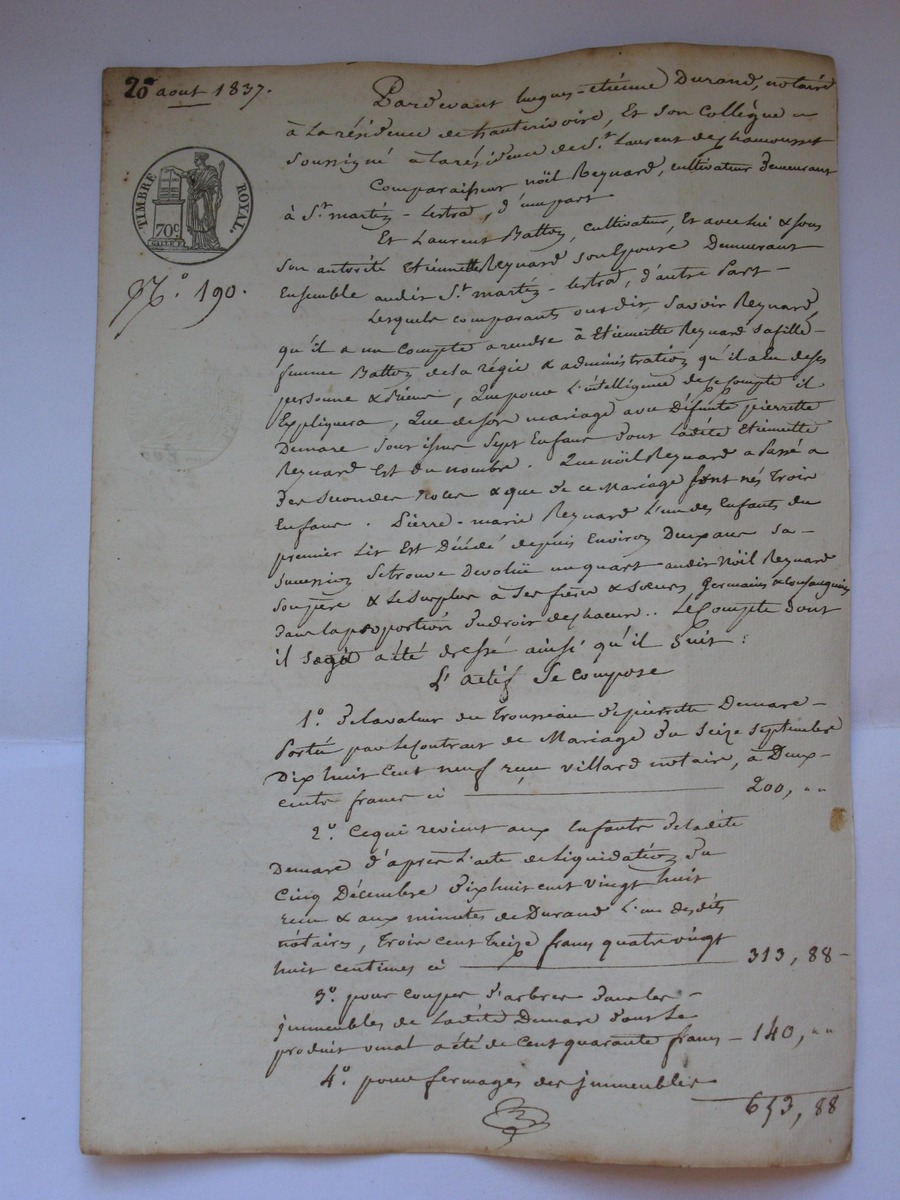 20 aout 1837.
TIMBRE ROYAL.
70c
N.o 190.
Pardevant hugues-etiénne Durand, notaire
à la résidence de hauterivoire, Et son Collègue
soussigné à la résidence de St. Laurent de chamousset
Comparaissent nöel Reynard, cultivateur demeurant
à St. martin-Lestra, d'une part
Et Laurent Batton, cultivateur, Et avec lui & sous
son autorité Etiennette Reynard son Epouse Demeurant
Ensemble audit St. martin-lestra, d'autre Part -
Lesquels comparants ont dit, savoir Reynard,
qu'il a un Compte a rendre à Etiennette Reynard sa fille -
femme Batton de la régie & administration qu'il a Eu de ses
personne & biens, que pour l'intelligence de ce Compte il
Expliquera, que de son mariage avec Défunte pierrette
Demare sont issus sept Enfans dont Ladite Etiennette
Reynard Est du nombre. Que nöil Reynard a passé a
des secondes noces & que de ce Mariage sont nés Trois
Enfans. Pierre-marie Reynard L'un des Enfants du
premier Lit Est Décédé depuis Environ Deux ans sa -
succession se trouve Devolüe un quart audit Nöil Reynard
son père & Le surplus à ses frères & sœurs Germains & consanguins
dans la proportion du droit de chacun.. Le Compte dont
il s'agit a été dressé ainsi qu'il suit:
L'actif se compose
1.o de la valeur du Trousseau de pierrette Demare -
Portée par le contrat de Mariage du seize septembre
Dix huit Cent neuf reçu villard notaire, à Deux -
cents francs ci 200, ""
2.o Ce qui revient aux Enfants de ladite
Demare d'après l'acte de Liquidation du
Cinq Décembre dix huit cent vingt huit
reçu & aux minutes de Durand L'un desdits
nótaires, Trois cent treize francs quatre vingt
huit centimes ci 313, 88 -
3.o pour coupes d'arbres dans les -
jmmeubles de Ladite Demare dont Le
produit venal a été de Cent quarante francs - 140, ""
4.o pour fermages des jmmeubles
653, 88